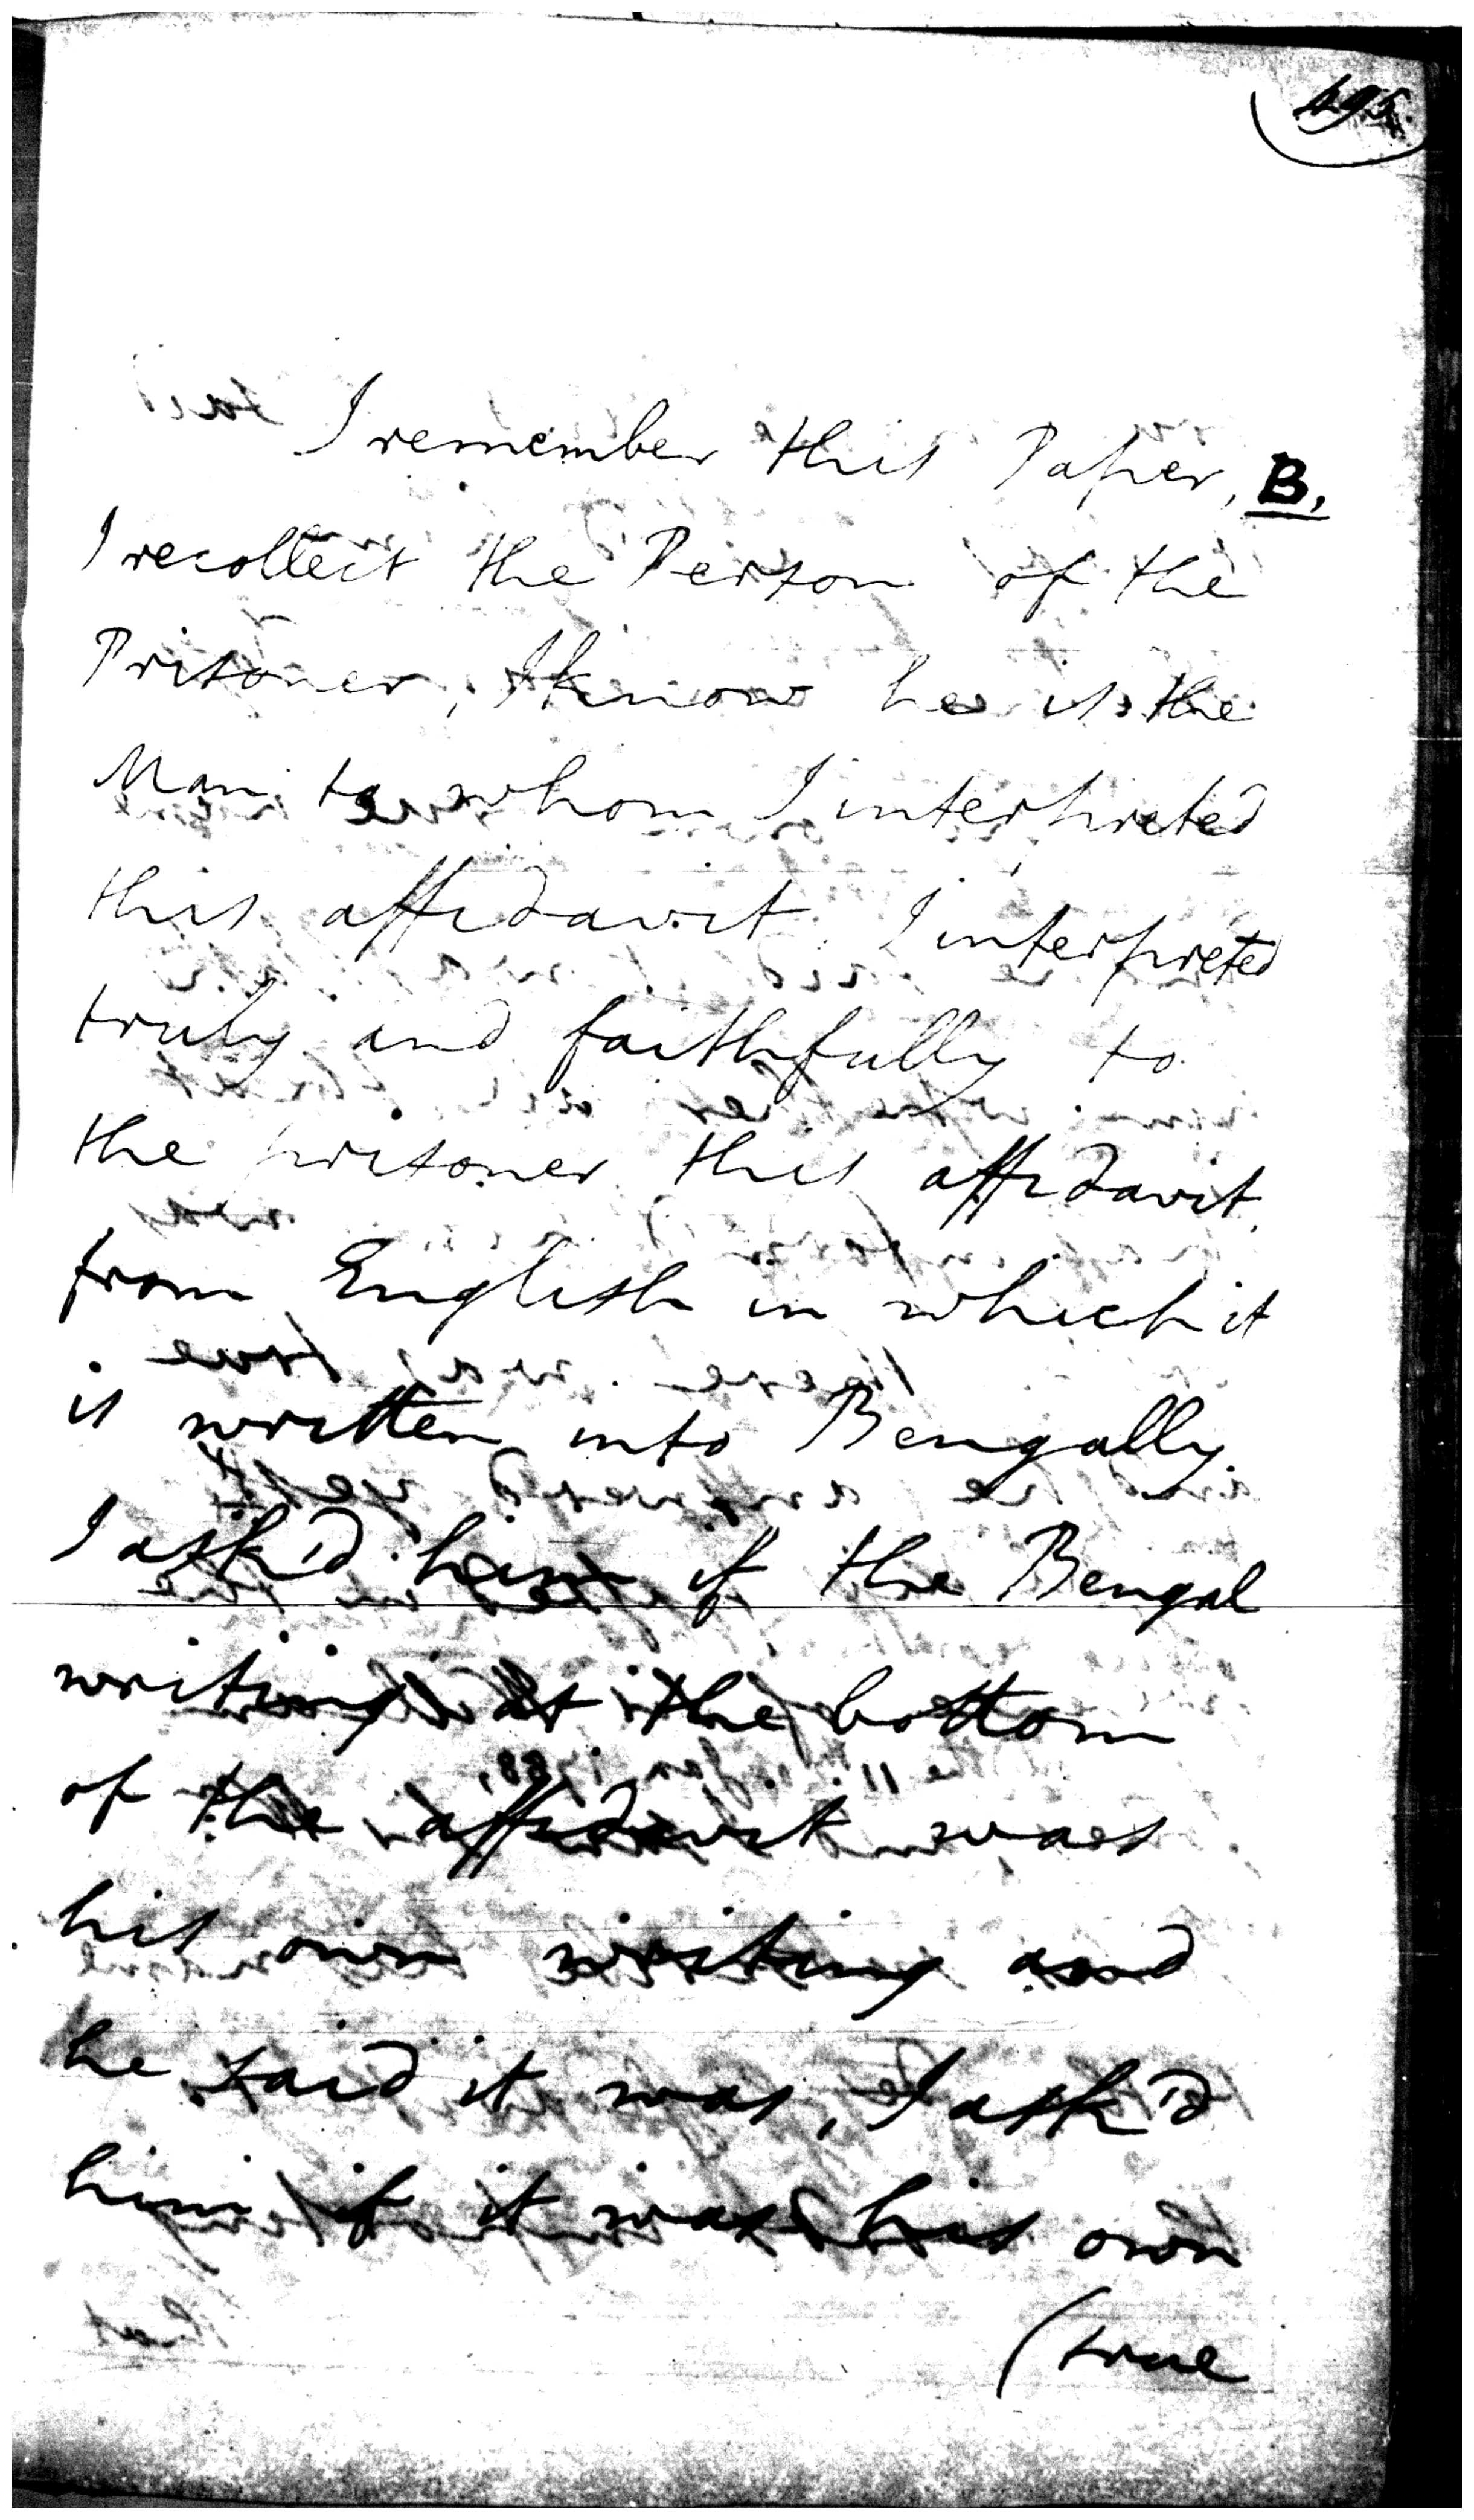 I remember this Paper, B,
I recollect the Person of the
Prisoner, I know he is the
Man to whom I interpreted
this affidavit. I interpreted
truly and faithfully to
the prisoner this affidavit
from English in which it
is written into Bengally.
I ask'd him if the Bengal
writing at the bottom
of the affidavit was
his own writing and
he said it was, I ask'd
him if it was his own
(true